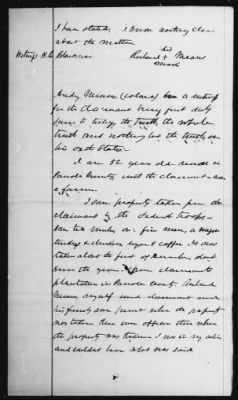 I have stated. I know nothing else
about the matter
his
Richard x Means
mark
Andy Means (colored) a witness
for the claimant being first duly
sworn to testify the truth, the whole
truth and nothing but the truth on
his oath states
I am 32 years old reside in
Panola County with the claimant am
a farmer.
I saw property taken from the
claimant by the Federal troops
ten mules or five mares, a wagon
turkeys & chickens sugar & coffee. It was
taken about the first of December dont
know the year from claimants
plantation in Panola County. Richard
Means myself and claimant and
his family was present when the property
was taken. There were officers there when
the property was taken. I was in my cabin
and couldnt hear what was said